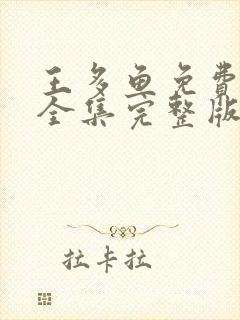 王多鱼免費
全集完整版
拉卡拉